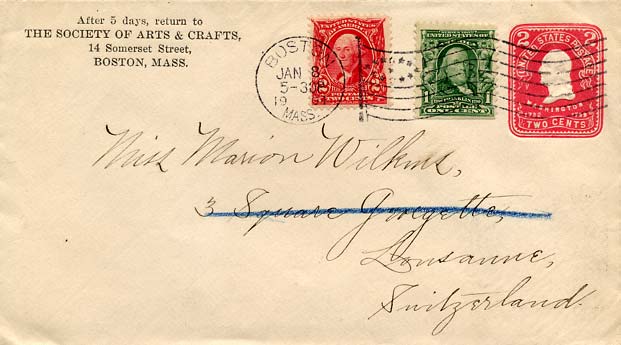 After 5 days, return to
THE SOCIETY OF ARTS & CRAFTS,
14 Somerset Street,
BOSTON, MASS.
BOSTON
JAN 8
5-30P
19
MASS.
UNITED STATES
OF AMERICA
POSTAGE
2 TWO CENTS 2
UNITED STATES OF
FRANKLIN
ONE CENT
2 2
UNITED STATES POSTAGE
WASHINGTON
1732 1799
TWO CENTS
Miss Marion Wilkins,
3 Square Georgette,
Lousanne,
Switzerland.